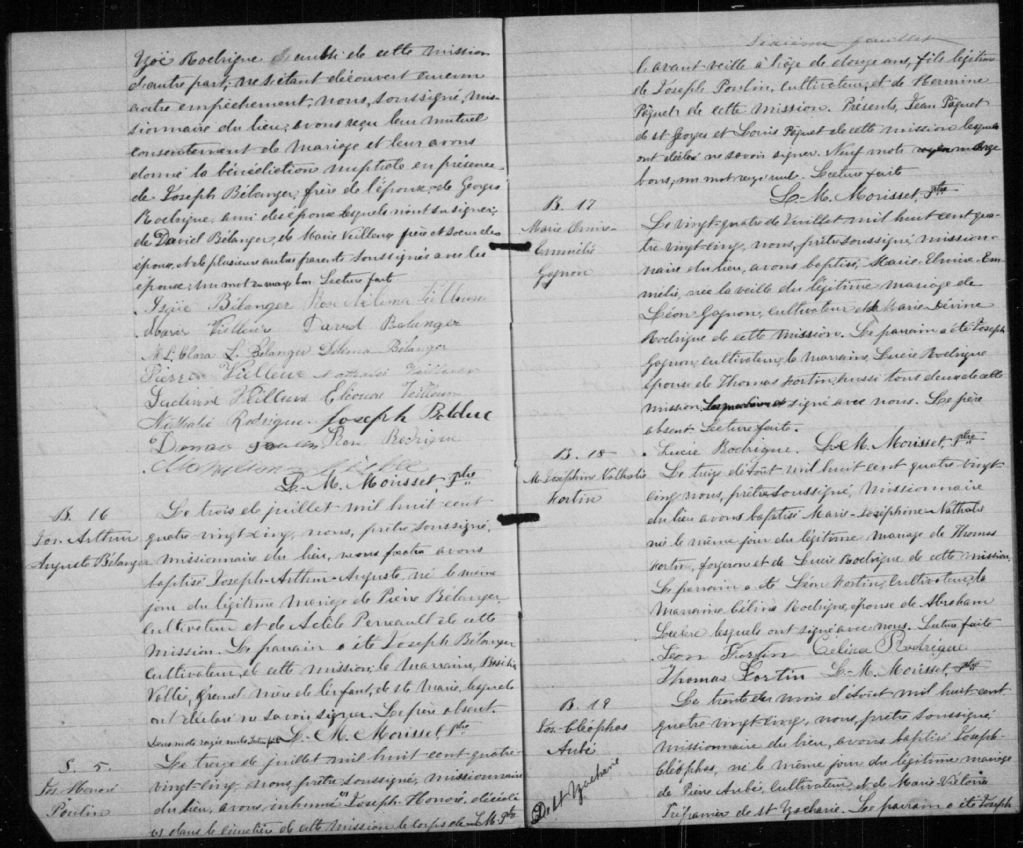 Zoé Rodrigue de cette mission
d'autre part, ne s'étant découvert aucun
autre empêchement, nous, soussigné, mis-
sionnaire du lieu, avons reçu leur mutuel
consentement de mariage et leur avons
donné la bénédiction nuptiale en présence
de Joseph Bélanger, frère de l'épouse, de Georges
Rodrigue, ami des époux lesquels n'ont su signer,
de David Bélanger, de Marie Veilleux frère et soeur des
époux, et de plusieurs autres parents soussignés avec les
époux. Un mot en marge bon. Lecture faite
Bélanger
David Bélanger
M. L. Clara L. Bélanger Délima Bélanger
Pierre Veilleux Nathalie
Eléonore Veilleux
Nathalie Rodrigue Joseph Bolduc
Rose Rodrigue
L. M. Morisset, ptre
B. 16
Jos. Arthur
Auguste Bélanger
Le trois de juillet mil huit cent
quatre vingt cinq, nous, prêtre soussigné,
missionnaire du lieu, avons
baptisé Joseph-Arthur-Auguste, né le même
jour du légitime mariage de Pierre Bélanger
cultivateur et de Perreault de cette
mission. Le parrain a été Joseph Bélanger
cultivateur de cette mission, la marraine,
grand mère de l'enfant, de ste Marie, lesquels
ont déclaré ne savoir signer. Le père absent.
Deux mots rayés nuls. L. M. Morisset ptre
S. 5.
Jos. Honoré
Poulin
Le treize de juillet mil huit cent quatre-
vingt-cinq, nous, prêtre soussigné, missionnaire
du lieu, avons inhumé Joseph Honoré, décédé
dans le cimetière de cette mission le corps de L. M. Ptre
Sixième feuillet
l'avant veille à l'âge de douze ans, fils légitime
de Joseph Poulin, cultivateur, et de Hermine
Pâquet de cette mission. Présents, Jean Pâquet
de st Georges et Louis Pâquet de cette mission lesquels
ont déclaré ne savoir signer. Neuf mots en marge
bons, un mot rayé nul. Lecture faite
L. M. Morisset, ptre
B. 17
Marie Elmire-
Gagnon
Le vingt-quatre de Juillet mil huit cent qua-
tre vingt-cinq, nous, prêtre soussigné mission-
naire du lieu, avons baptisé Marie-Elmire-
née la veille du légitime mariage de
Léon Gagnon, cultivateur et de Marie
Rodrigue de cette mission. Le parrain a été Joseph
Gagnon, cultivateur, la marraine, Lucie Rodrigue
épouse de Thomas Fortin, aussi tous deux de cette
mission, signé avec nous. Le père
absent Lecture faite.
Lucie Rodrigue. L. M. Morisset ptre
B. 18
M. Joséphine Nathalie
Fortin
Le treize d'Août mil huit cent quatre vingt-
cinq nous, prêtre soussigné, Missionnaire
du lieu avons baptisé Marie-Joséphine-Nathalie
née le même jour du légitime mariage de Thomas
Fortin, forgeron et de Lucie Rodrigue de cette mission
Le parrain a été Léon Fortin, cultivateur, la
Marraine Céline Rodrigue, épouse de Abraham
Leclerc lesquels ont signé avec nous. Lecture faite
Léon Fortin Célina Rodrigue
Thomas Fortin L. M. Morisset, ptre
B. 19
Jos. Cléophas
Aubé
De st Zacharie
Le trente du mois d'Août mil huit cent
quatre vingt-cinq, nous, prêtre soussigné
missionnaire du lieu, avons baptisé Joseph
Cléophas, né le même jour du légitime mariage
de Pierre Aubé, cultivateur et de Marie Victoria
de st Zacharie. Le parrain a été Joseph